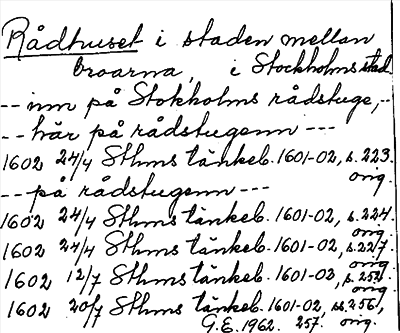 Rådhuset i staden mellan
broarna, i Stockholms stad.
-- inn på Stokholms rådstuge,--
-- här på rådstugenn ---
1602 24/4 Sthms tänkeb. 1601-02, s. 223.
orig.
-- på rådstugenn ---
1602 24/4 Sthms tänkeb. 1601-02, s. 224.
orig.
1602 24/4 Sthms tänkeb. 1601-02, s. 227.
orig.
1602 12/7 Sthms tänkeb. 1601-03, s. 252.
orig.
1602 20/7 Sthms tänkeb. 1601-02, ss. 256,
G.E. 1962. 257. orig.